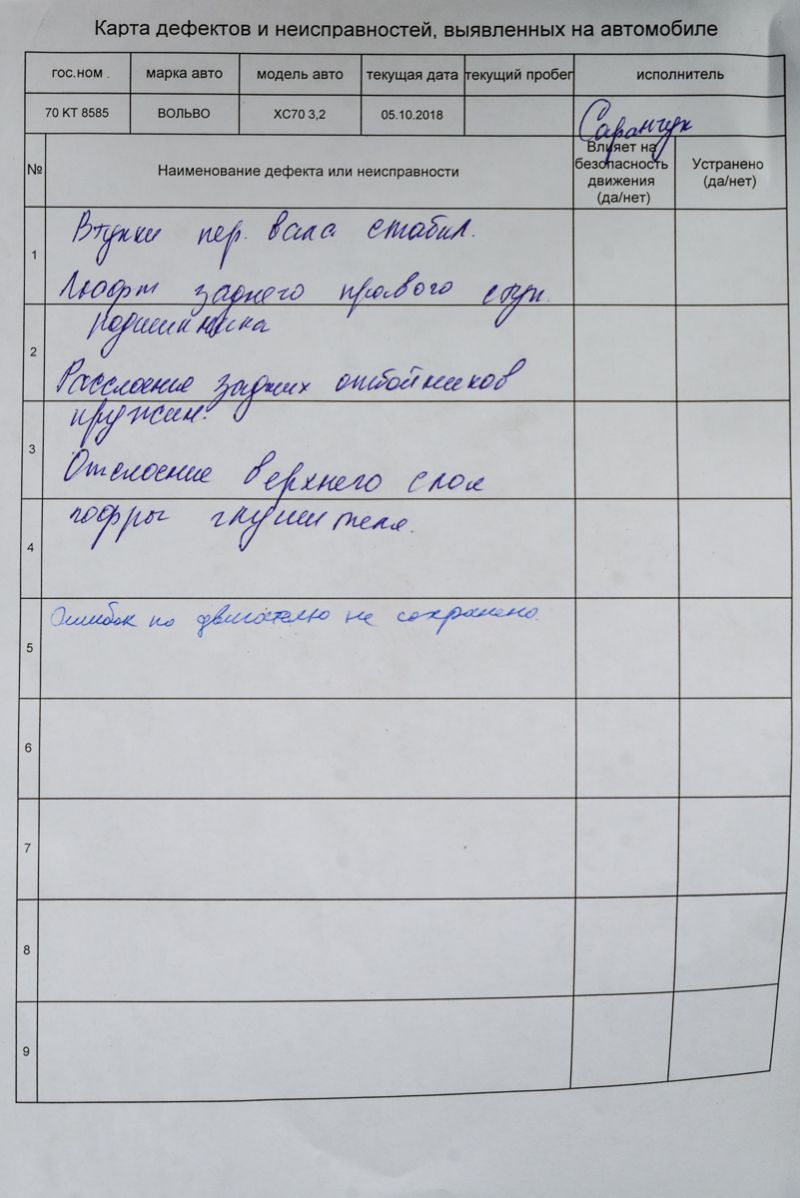 Карта дефектов и неисправностей, выявленных на автомобиле
гос.ном . марка авто модель авто текущая дата текущий пробег исполнитель
70 КТ 8585 ВОЛЬВО ХС70 3,2 05.10.2018 Саранчук
№ Наименование дефекта или неисправности Влияет на безопасность движения (да/нет) Устранено (да/нет)
1 Втулки пер. вала стабил.
Люфт заднего правого ступ.
2 подшипника
Расслоение задних отбойников
3 пружин.
Отслоение верхнего слоя
4 гофры глушителя.
5 Ошибок по двигателю не сохранено.
6
7
8
9